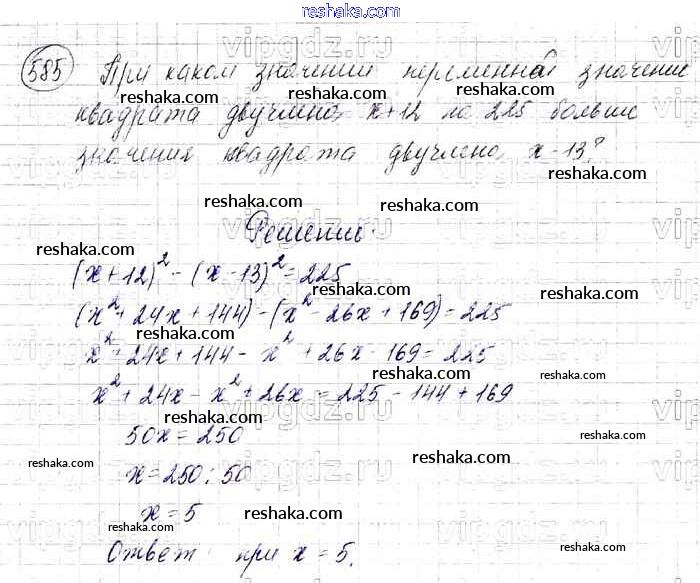 reshaka.com
585 При каком значении переменной значение
квадрата двучлена x+12 на 225 больше
значения квадрата двучлена x-13?
Решение.
(x+12)² - (x-13)² = 225
(x² + 24x + 144) - (x² - 26x + 169) = 225
x² + 24x + 144 - x² + 26x - 169 = 225
x² + 24x - x² + 26x = 225 - 144 + 169
50x = 250
x = 250 : 50
x = 5
Ответ: при x = 5.